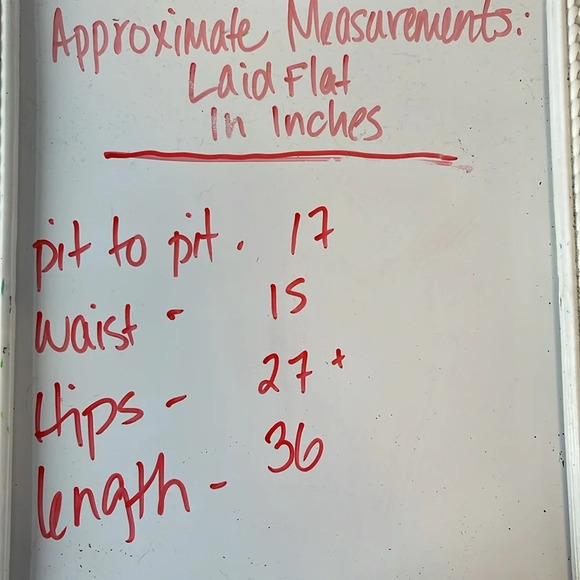 Approximate Measurements:
Laid Flat
In Inches
pit to pit. 17
waist - 15
Hips - 27+
length - 36